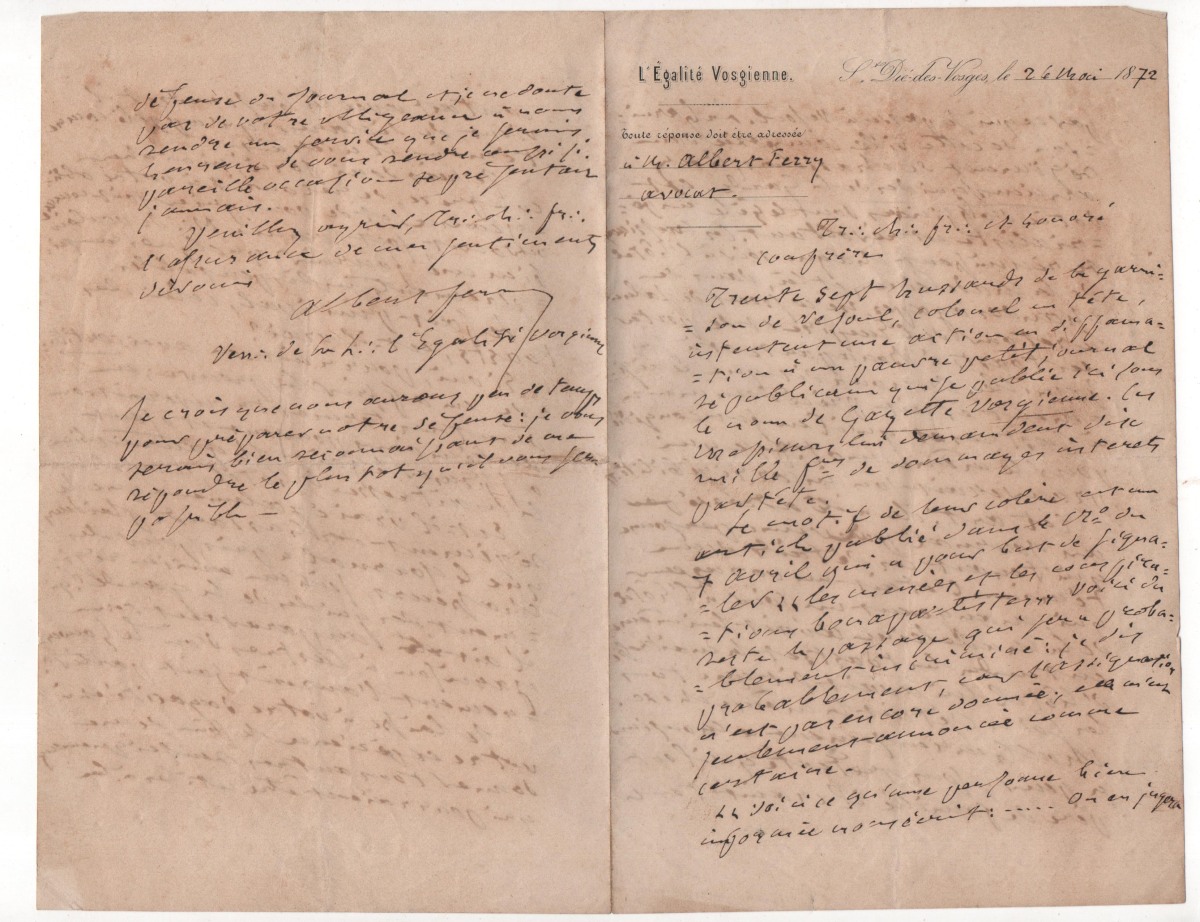 L'Égalité Vosgienne.
St Dié-des-Vosges, le 26 Mai 1872
Toute réponse doit être adressée
à M. Albert Ferry
avocat.
Tr∴ ch∴ fr∴ et honoré
confrère
Trente sept hussards de la garni=
=son de Vesoul, colonel en tête,
intentent une action en diffama=
=tion à un pauvre petit journal
républicain qui se publie ici sous
le nom de Gazette Vosgienne. Ces
messieurs lui demandent dix
mille frs de dommages intérets
par tête.
Le motif de leur colère est un
article publié dans le No du
7 avril qui a pour but de signa=
=ler les menées et les conspira=
=tions bonapartistes. Voici du
reste le passage qui sera proba=
=blement incriminé : je dis
probablement, car l'assignation
n'est pas encore donnée, elle n'est
seulement annoncée comme
certaine.
" Voici ce qu'une personne bien
informée nous écrit : ..... On en jugera
défense du journal et je ne doute
pas de votre obligeance à nous
rendre un service que je serais
heureux de vous rendre aussi si
pareille occasion se présentait
jamais.
Veuillez agréer, Tr∴ ch∴ fr∴
l'assurance de mes sentiments
dévoués
Albert Ferry
Ven∴ de la L∴ l'Egalité Vosgienne
Je crois que nous aurons peu de temps
pour préparer notre défense : je vous
serais bien reconnaissant de me
répondre le plus tot qu'il vous sera
possible —